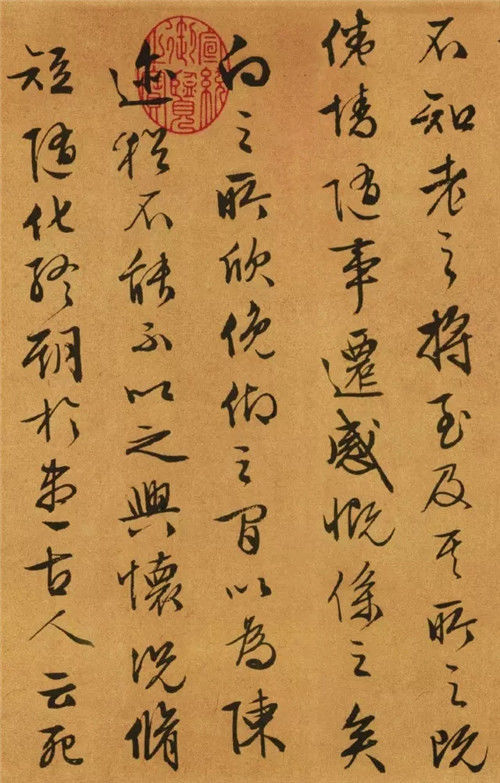 不知老之將至及其所之既
倦情隨事遷感慨係之矣
向之所欣俛仰之間以為陳
迹猶不能不以之興懷況脩
短隨化終期於盡古人云死
宣統
御覽
之寶